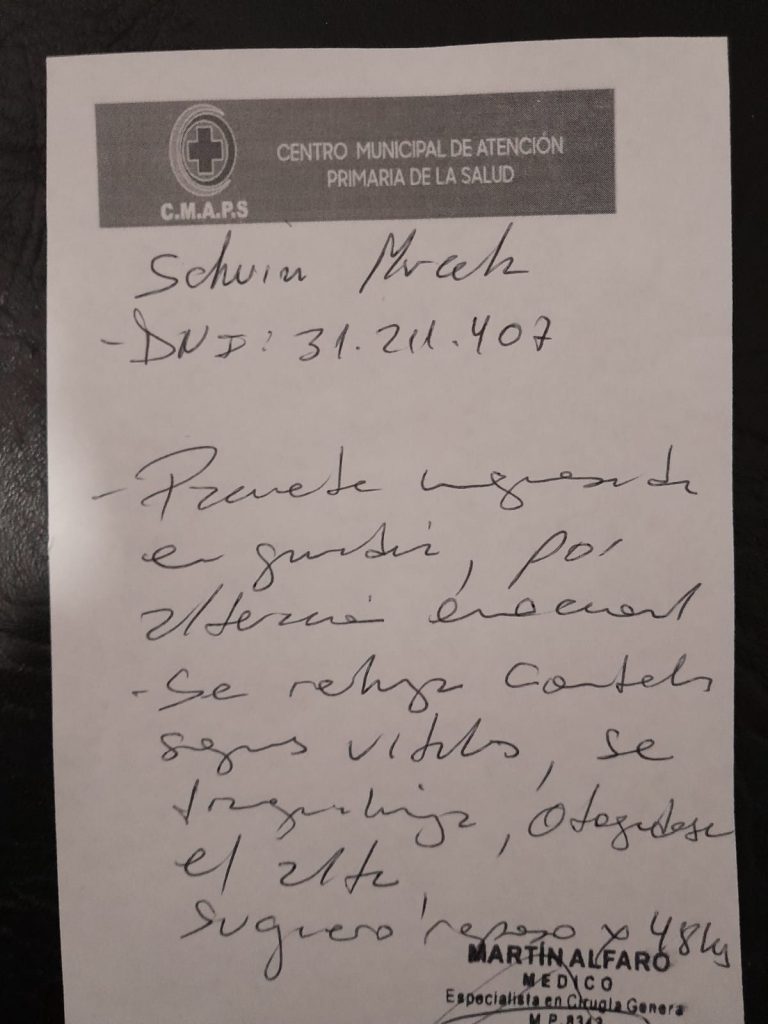 C.M.A.P.S
CENTRO MUNICIPAL DE ATENCIÓN
PRIMARIA DE LA SALUD
- DNI: 31.211.407
- Paciente ingresada
en guardia, por
alteración emocional
- Se realiza control
signos vitales, se
tranquiliza, otorgándose
el alta,
sugiero reposo x 48hs
MARTÍN ALFARO
MEDICO
Especialista en Cirugía Genera
M.P. 8342